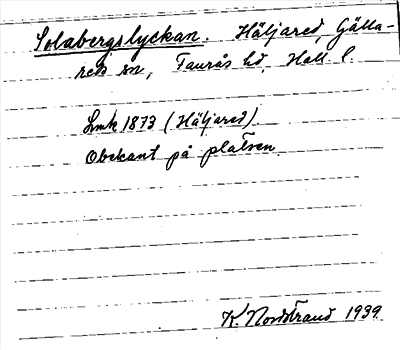 Solabergslyckan. Häljared, Gälla-
reds sn, Faurås hd, Hall l.
Lmk 1873 (Häljared)
Obekant på platsen.
K. Nordstrand 1939